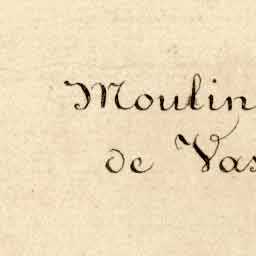 Moulin
de Vas